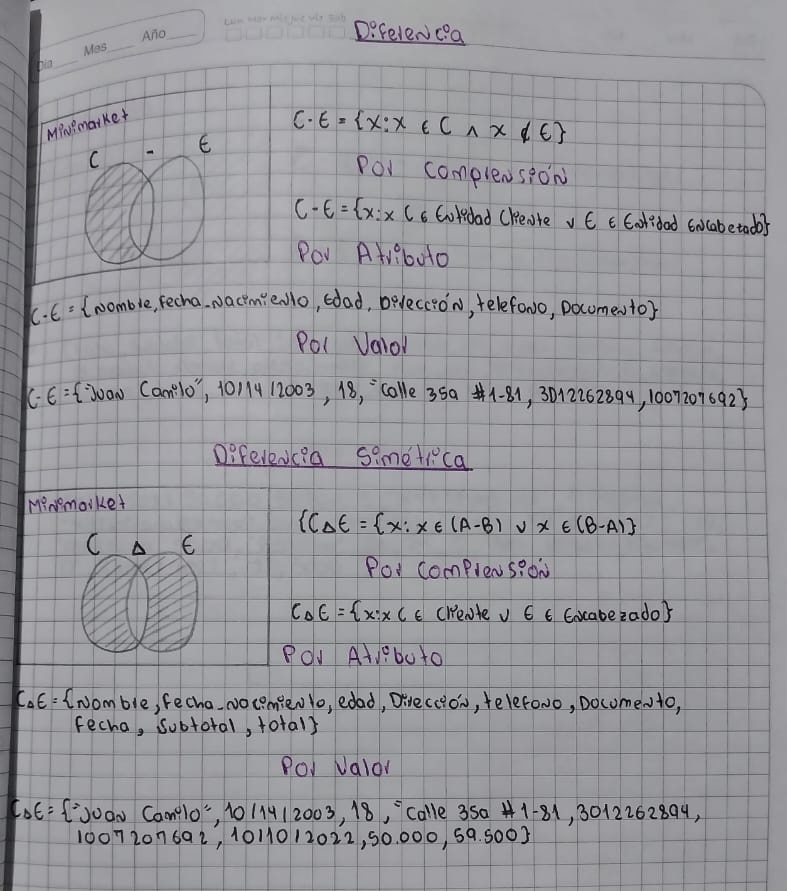 Lun Mar Mie Jue Vie Sab
Diferencia
Dia Mes Año
Minimarket
C - E
C-E = {x:x ∈ C ∧ x ∉ E}
Por Complensión
C-E = {x:x C ∈ Entidad Cliente ∨ E ∈ Entidad Encabetado}
Por Atributo
C-E = {Nombre, fecha_Nacimiento, Edad, Dirección, telefono, Documento}
Por Valor
C-E = {"Juan Camilo", 10/14/2003, 18, "Calle 35a #1-81, 3012262894, 1007207692}
Diferencia Simétrica
Minimarket
C Δ E
{CΔE = {x: x ∈ (A-B) ∨ x ∈ (B-A)}
Por Complensión
CΔE = {x:x C ∈ Cliente ∨ E ∈ Encabezado}
Por Atributo
CΔE = {Nombre, fecha_Nacimiento, edad, Dirección, telefono, Documento,
fecha, Subtotal, total}
Por Valor
CΔE = {"Juan Camilo", 10/14/2003, 18, "Calle 35a #1-81, 3012262894,
1007207692, 10/10/2022, 50.000, 59.500}